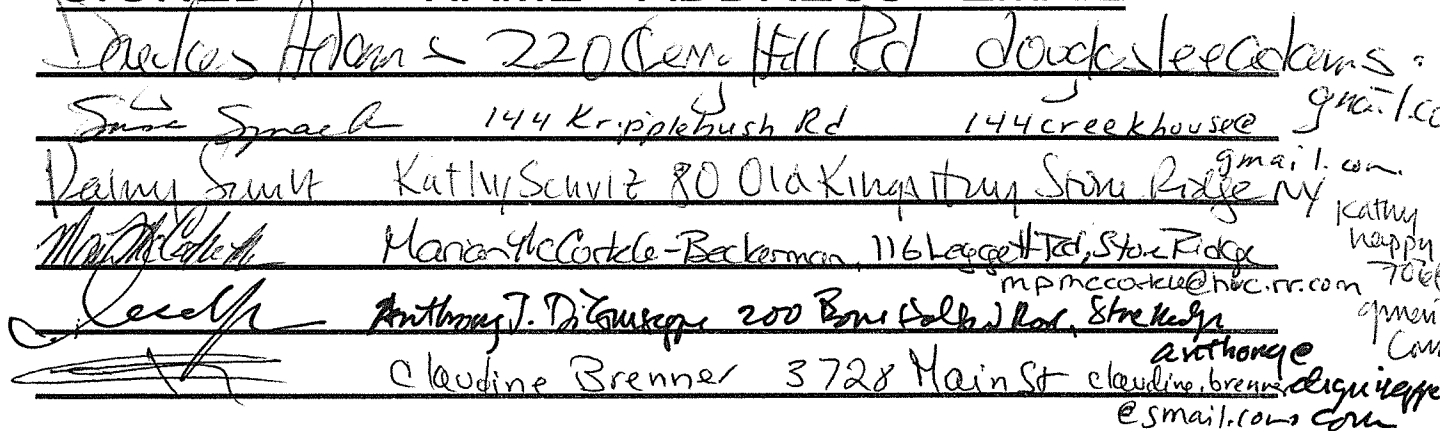 SIGNED NAME ADDRESS EMAIL
Adams 220 Hill Rd douglasleeadams.
gmail.co
144 Kripplebush Rd 144creekhouse@
gmail.com
Kathy Schulz 80 Old Kings Hwy Stone Ridge NY
Kathy
happy
706
gmail
Com
Marian McCorkle-Beckerman, 116 Leggett Rd, Stone Ridge
mpmccorkle@hvc.rr.com
Anthony J. DiGiuseppe 200 Road, Stone Ridge
anthony@
diguiseppe
com
Claudine Brenner 3728 Main St claudine.brenner
@gmail.com